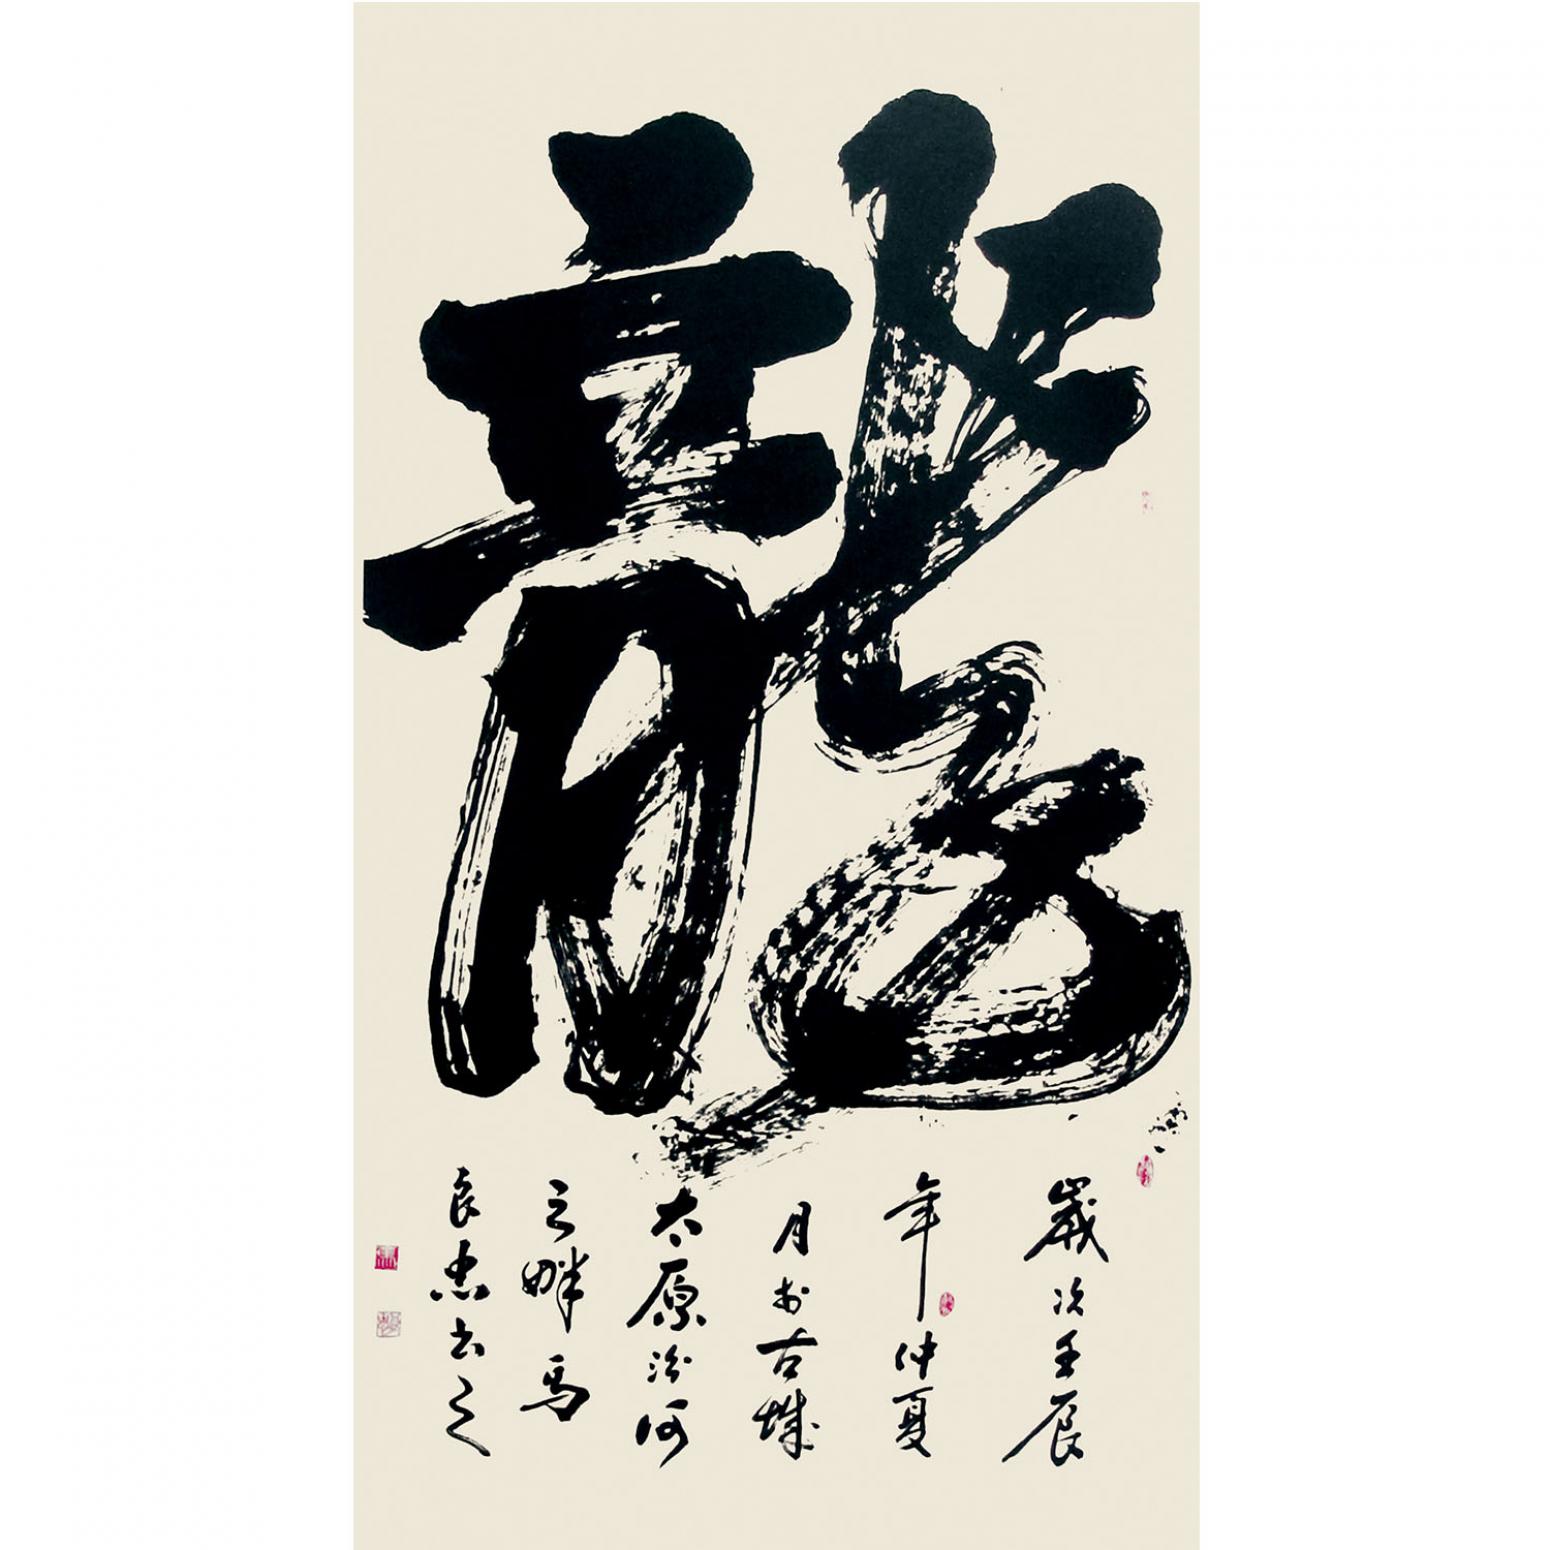 龍
歲次壬辰
年仲夏
月於古城
太原汾河
之畔馬
良忠書之